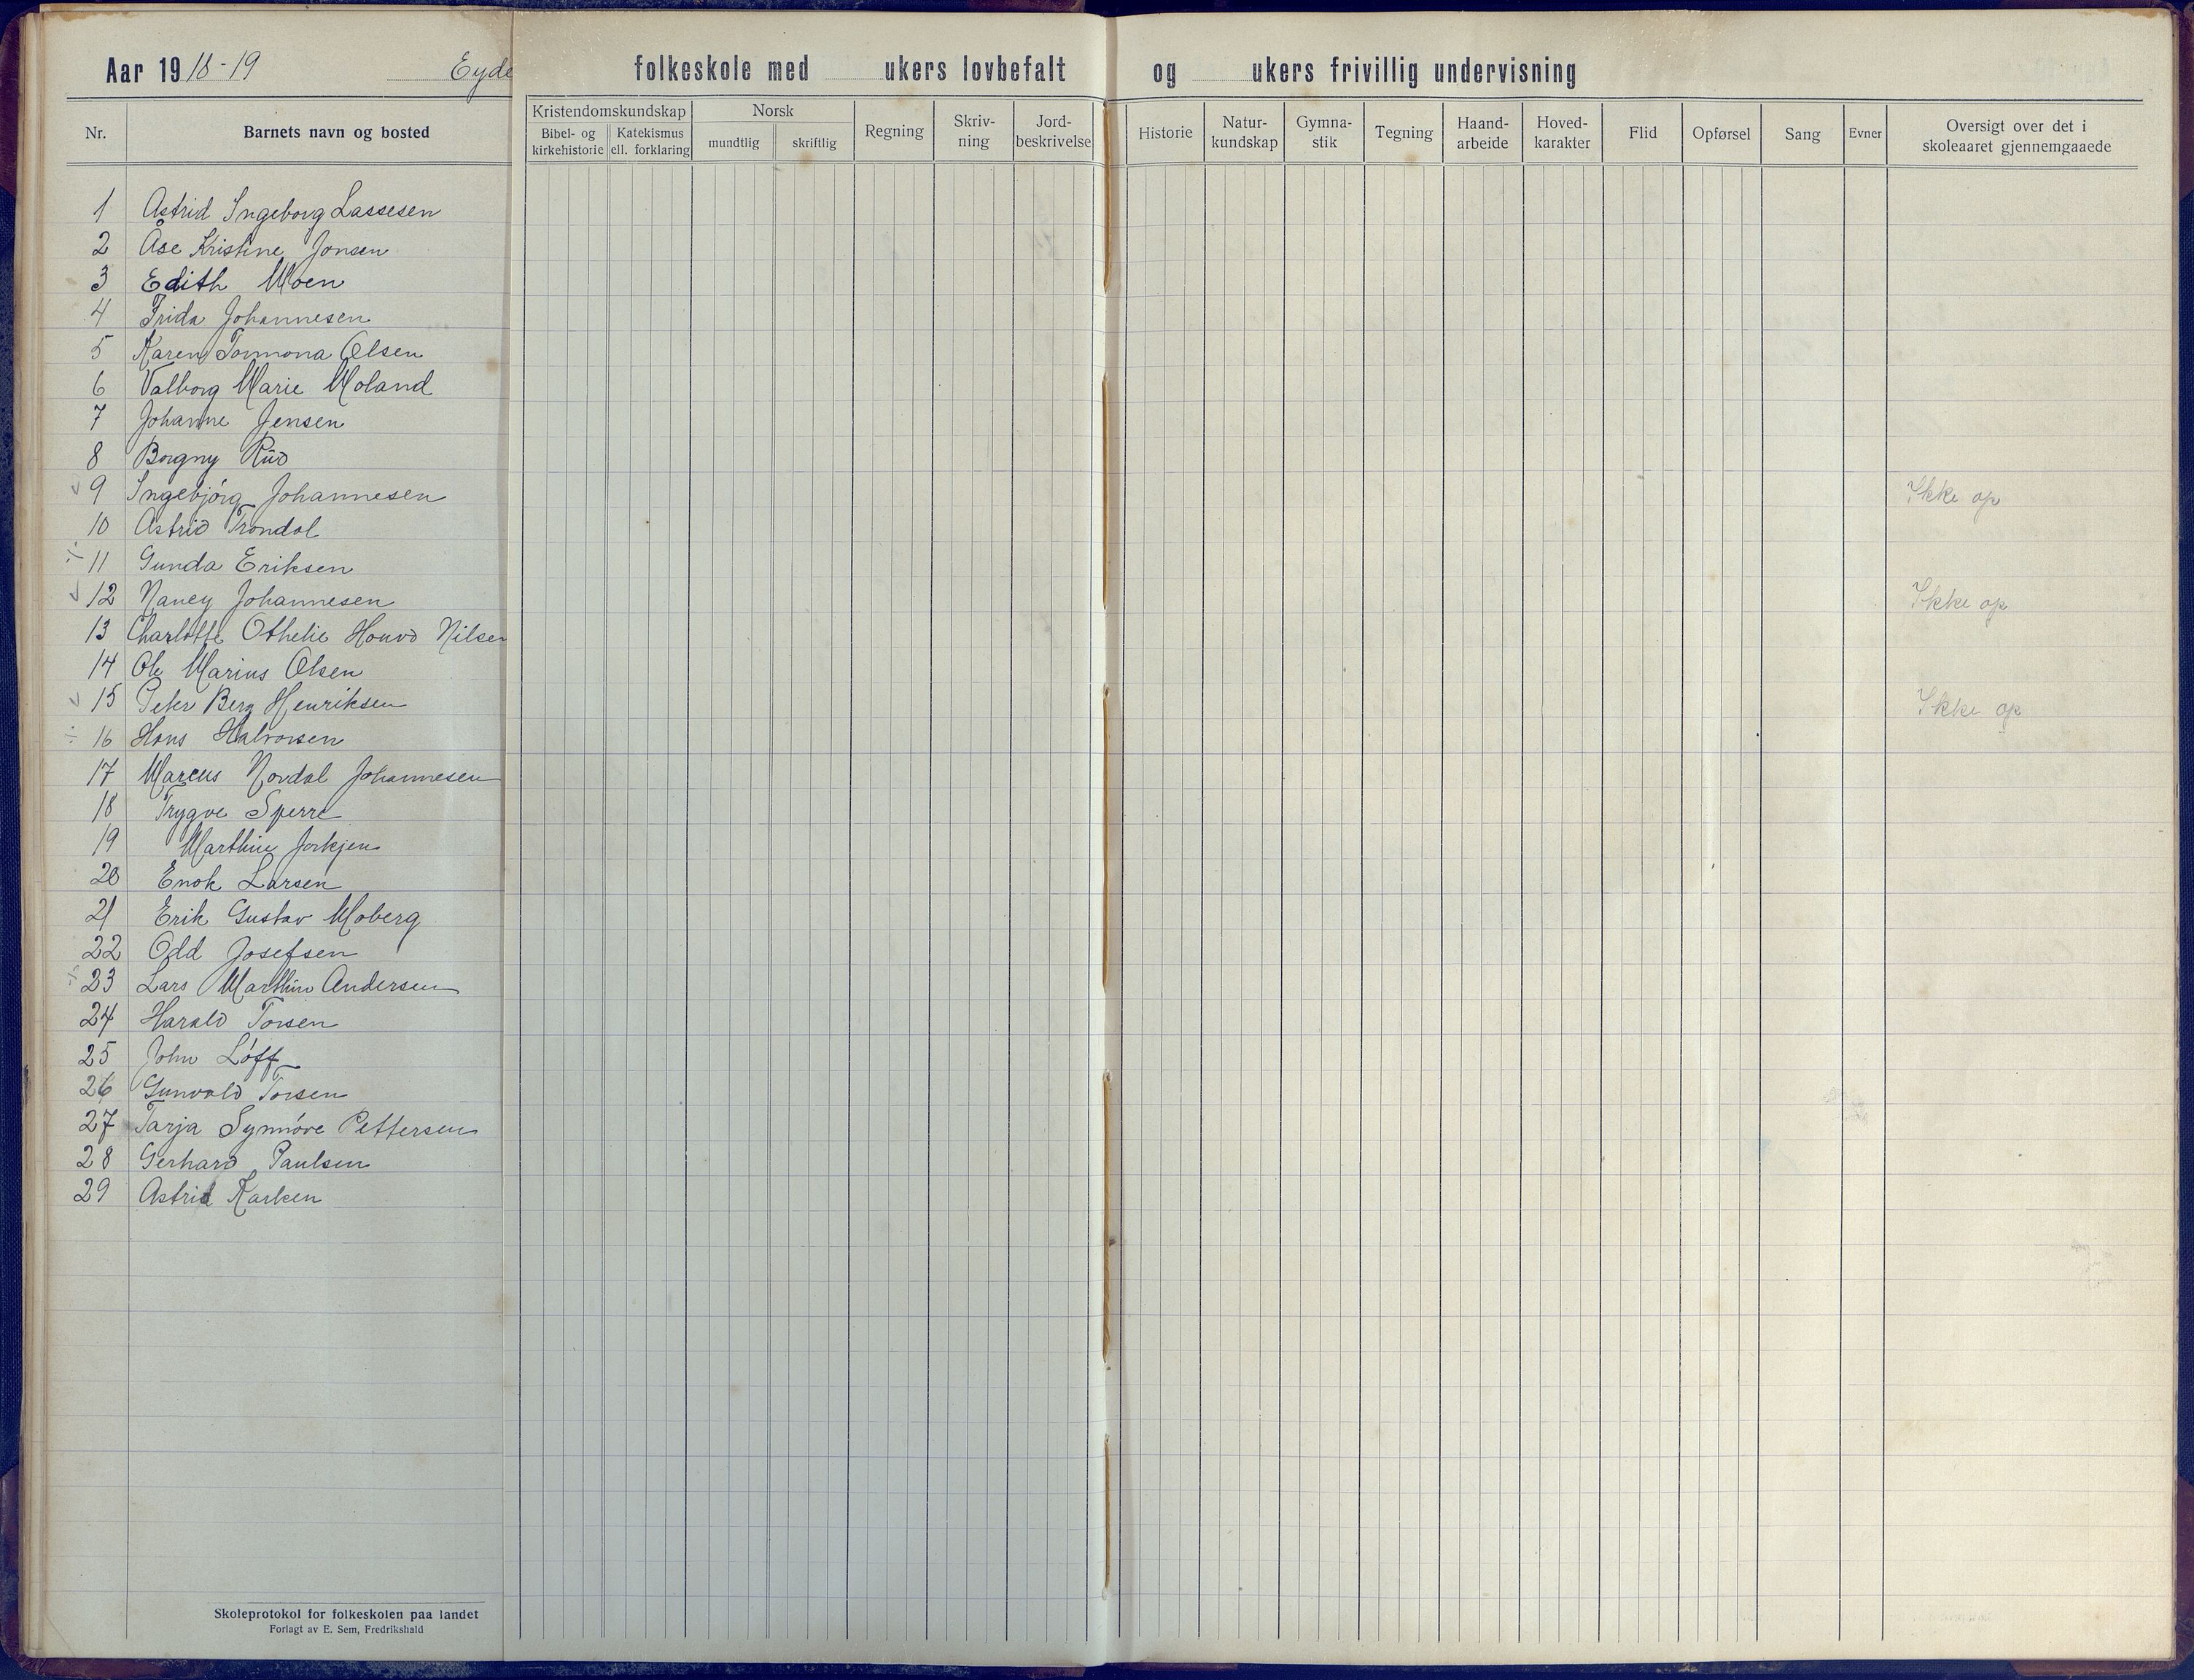 Aar 1918-19 Eyde folkeskole med ukers lovbefalt og ukers frivillig undervisning
Nr. Barnets navn og bosted
Kristendomskundskap
Bibel- og kirkehistorie
Katekismus ell. forklaring
Norsk
mundtlig
skriftlig
Regning
Skriv-
ning
Jord-
beskrivelse
Historie
Natur-
kundskap
Gymna-
stik
Tegning
Haand-
arbeide
Hoved-
karakter
Flid
Opførsel
Sang
Evner
Oversigt over det i
skoleaaret gjennemgaaede
1 Astrid Ingeborg Lassesen
2 Åse Kristine Jonsen
3 Edith Moen
4 Frida Johannesen
5 Karen Tormona Olsen
6 Valborg Marie Moland
7 Johanne Jensen
8 Borgny Rūd
9 Ingebjørg Johannesen Ikke op
10 Astrid Trondal
11 Gunda Eriksen
12 Nancy Johannesen Ikke op
13 Charlotte Othelie Nilsen
14 Ole Marius Olsen
15 Peter Berg Henriksen Ikke op
16 Hans Halvorsen
17 Marcus Nordal Johannesen
18 Trygve Sperre
19 Marthin
20 Enok Larsen
21 Erik Gustav Moberg
22 Odd Josefsen
23 Lars Marthin Andersen
24 Harald Torsen
25 John Løff
26 Gunvald Torsen
27 Tarja Synnøve Pettersen
28 Gerhard Paulsen
29 Astrid Karlsen
Skoleprotokol for folkeskolen paa landet
Forlagt av E. Sem, Fredrikshald